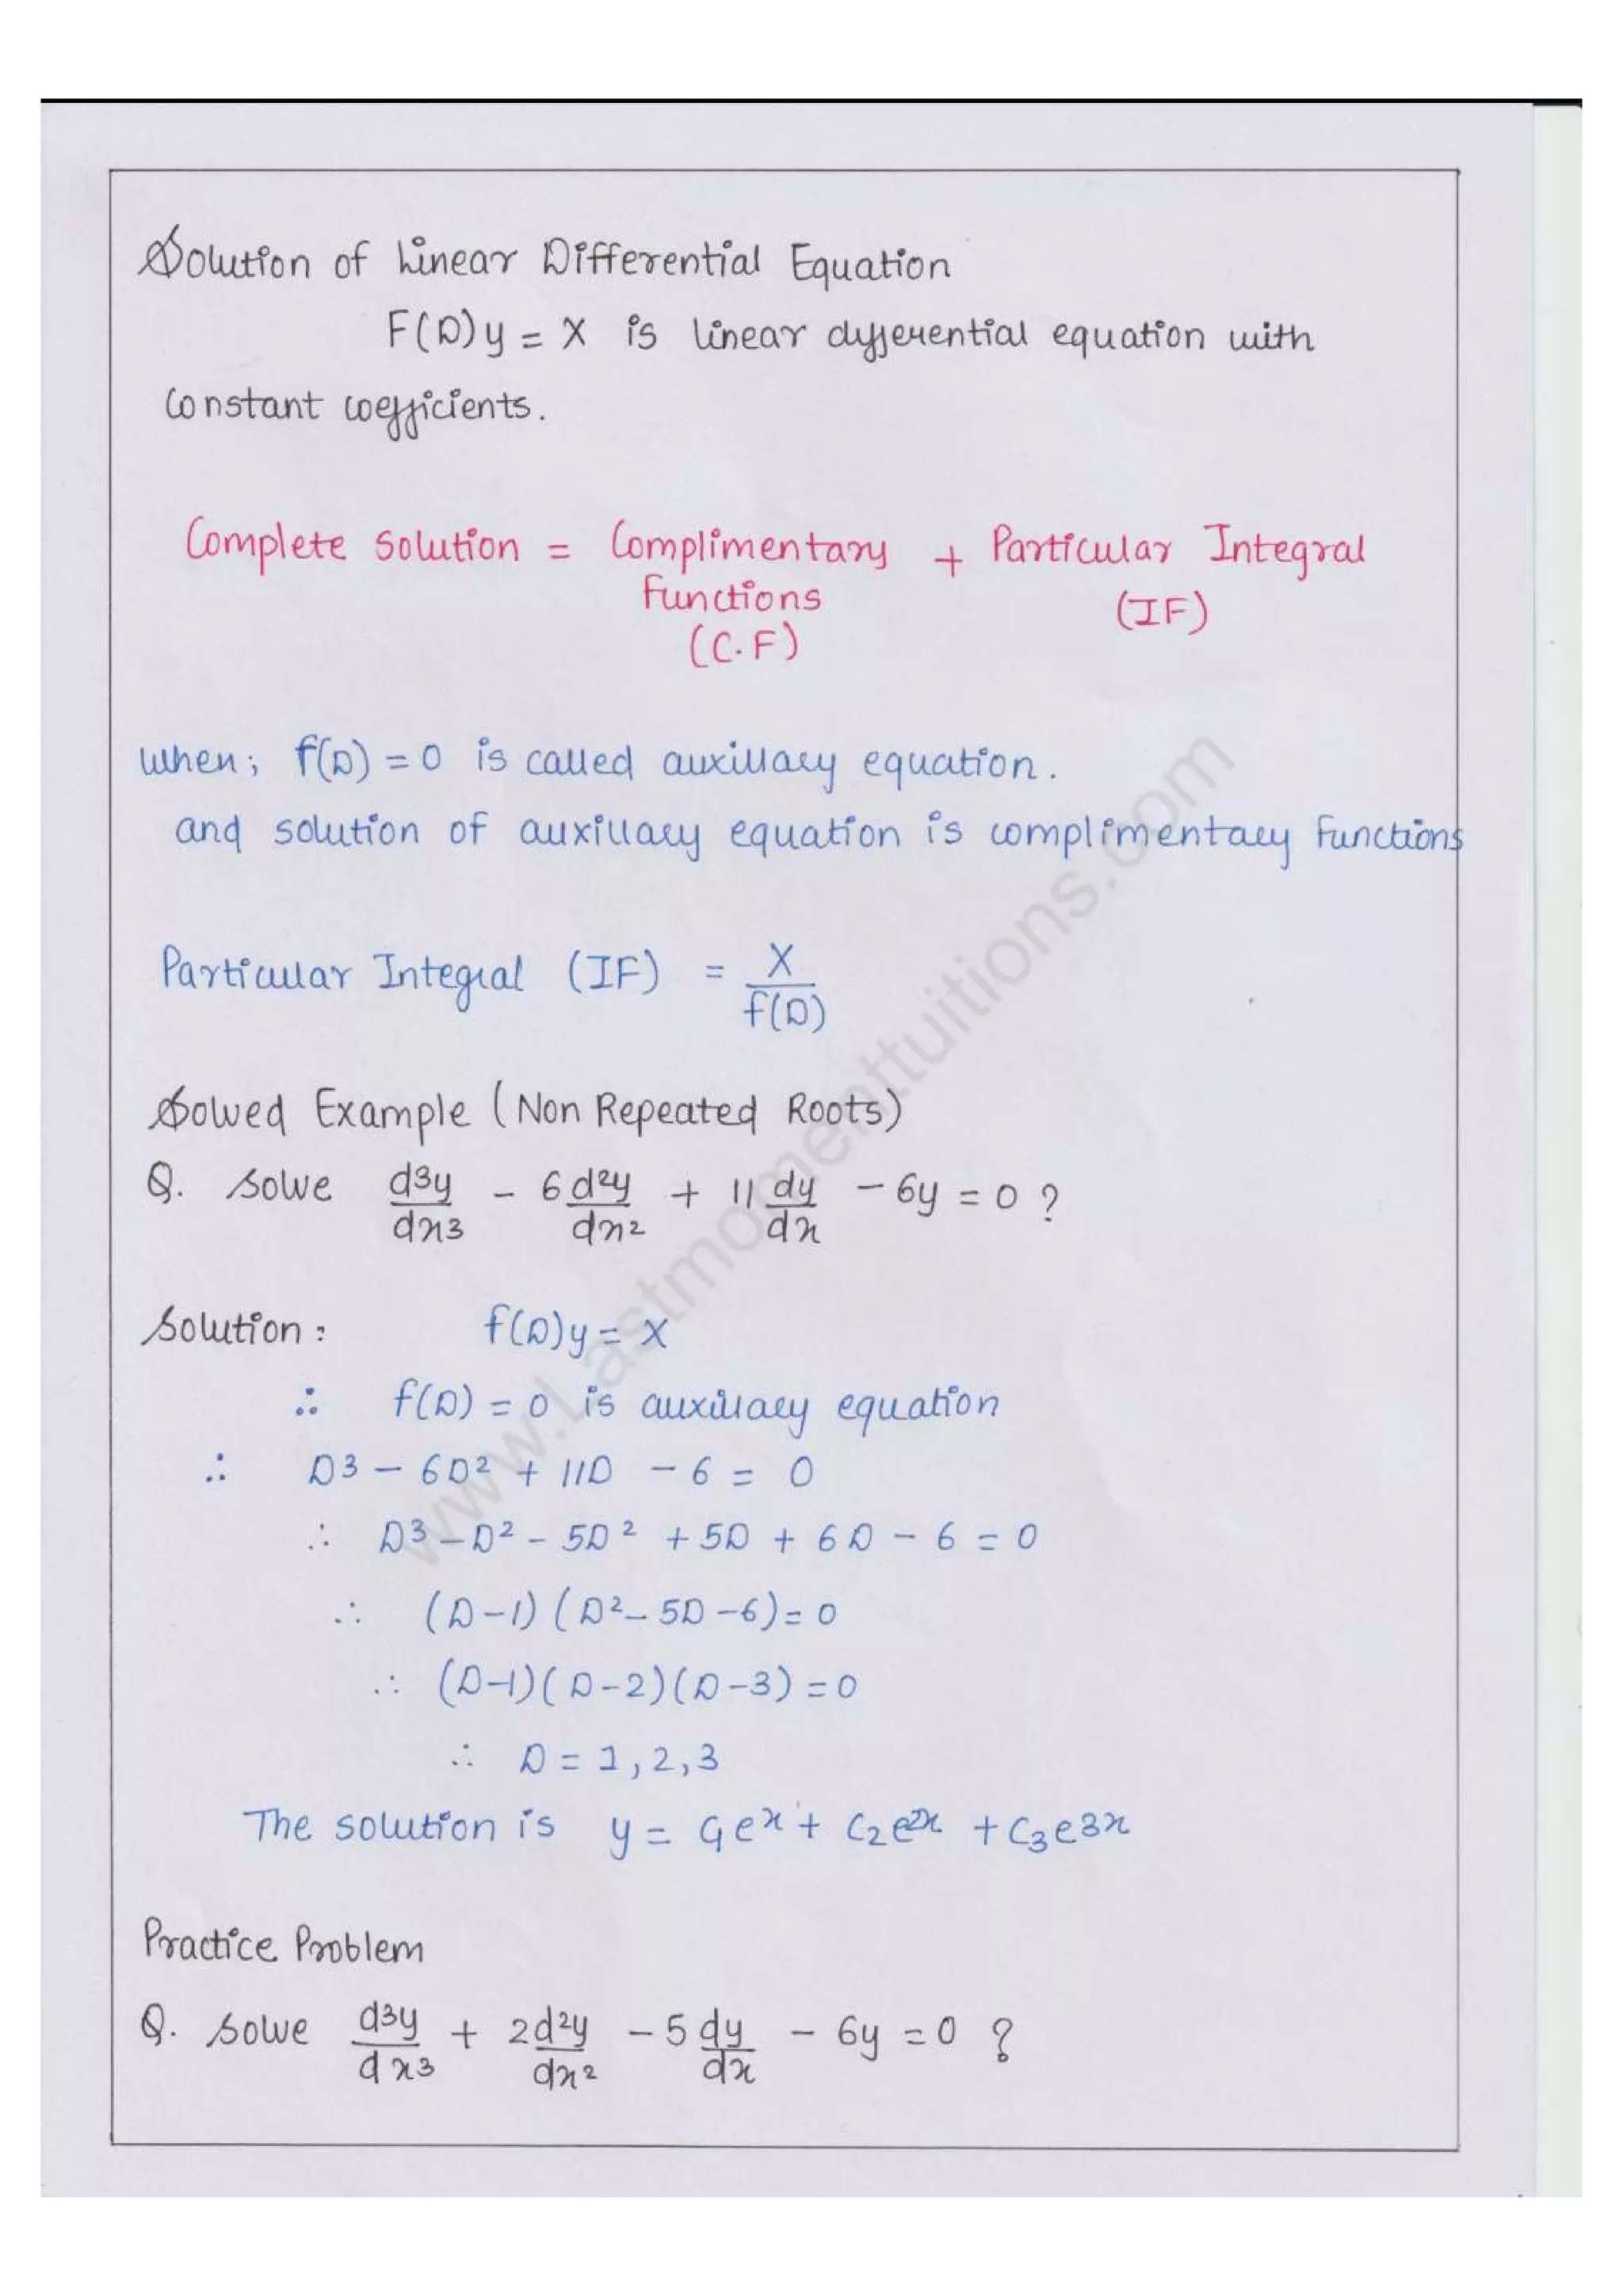 Solution of Linear Differential Equation
F(D)y = X is linear differential equation with
constant coefficients.
Complete Solution = Complimentary + Particular Integral
Functions
(IF)
(C.F)
When; f(D) = 0 is called auxillary equation.
and solution of auxillary equation is complimentary functions
Particular Integral (IF) = X/f(D)
Solved Example (Non Repeated Roots)
Q. Solve d³y/dx³ - 6d²y/dx² + 11dy/dx - 6y = 0 ?
Solution: f(D)y = X
∴ f(D) = 0 is auxillary equation
∴ D³ - 6D² + 11D - 6 = 0
∴ D³ - D² - 5D² + 5D + 6D - 6 = 0
∴ (D-1) (D² - 5D - 6) = 0
∴ (D-1)(D-2)(D-3) = 0
∴ D = 1, 2, 3
The solution is y = C₁eˣ + C₂e²ˣ + C₃e³ˣ
Practice Problem
Q. Solve d³y/dx³ + 2d²y/dx² - 5dy/dx - 6y = 0 ?
www.Lastmomenttuitions.com